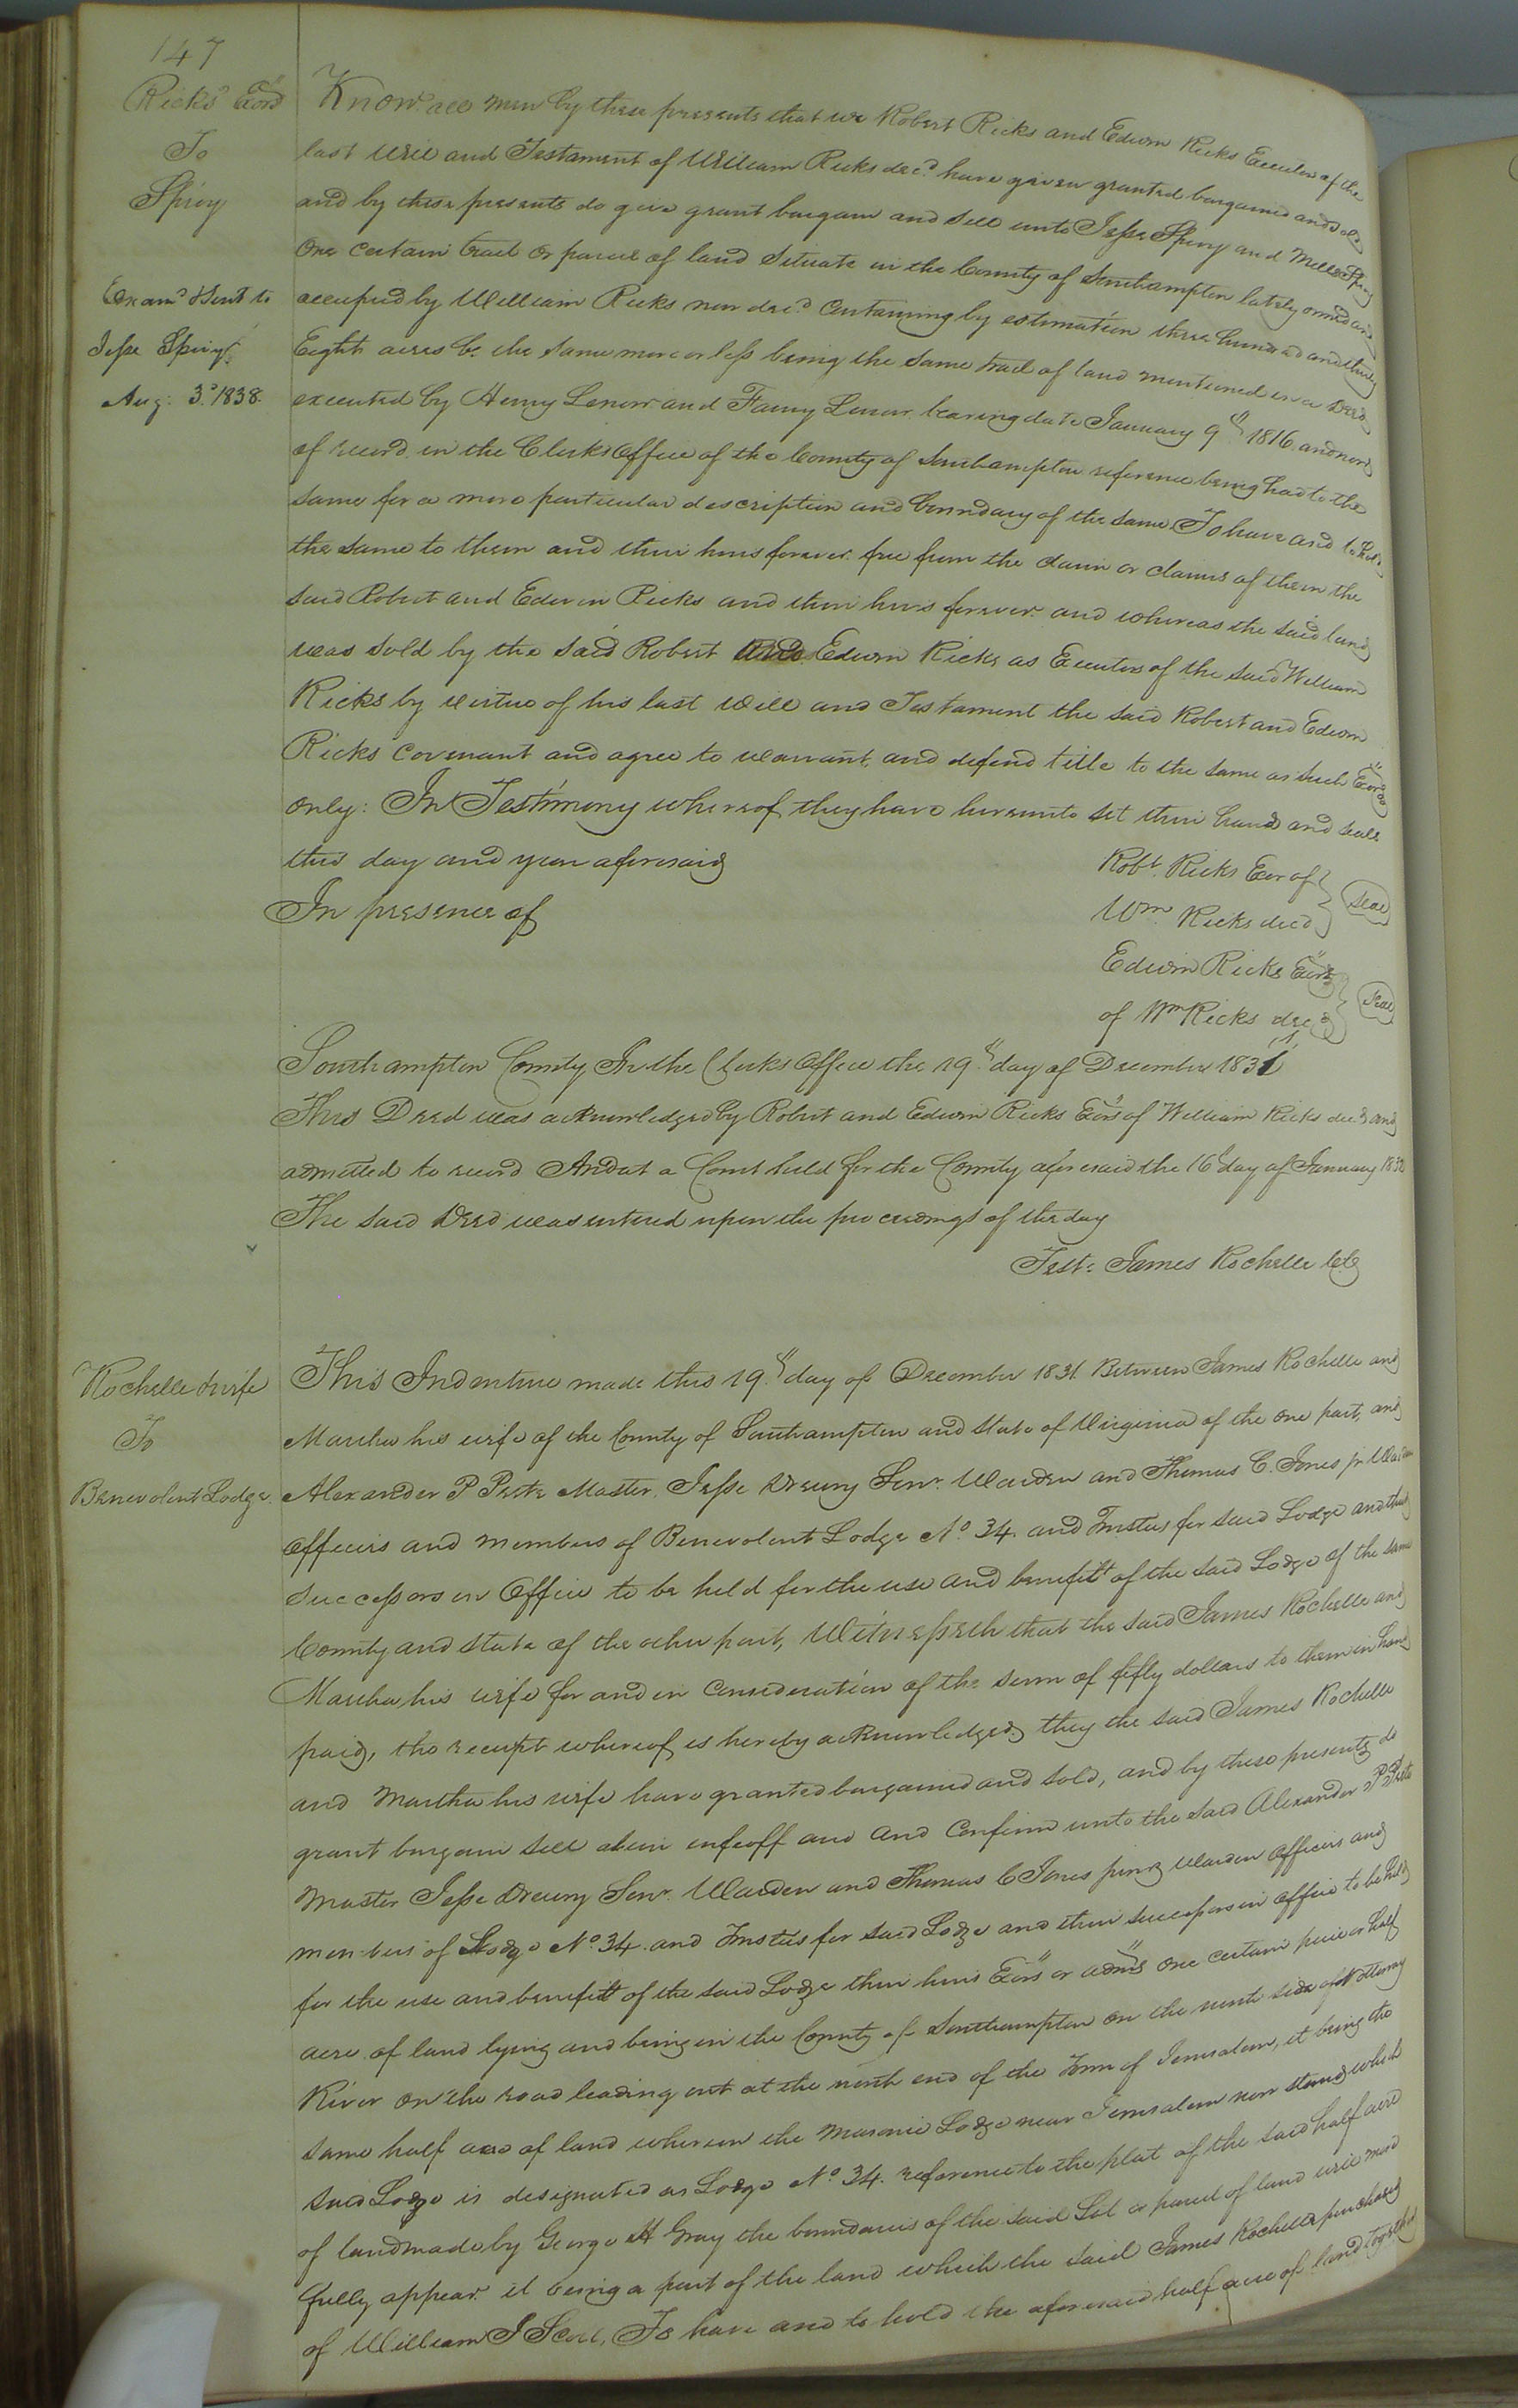 147
Ricks' Exors
To
Spivy
Exam.d & Sent to
Jesse Spivy
Aug: 3.d 1838.
Know all men by these presents that we Robert Ricks and Edwin Ricks Executors of the
last Will and Testament of William Ricks dec.d have given granted bargained and sold
and by these presents do give grant bargain and sell unto Jesse Spivy and Spivy
One certain tract or parcel of land situate in the County of Southampton lately owned and
occupied by William Ricks now dec.d containing by estimation three hundred and
Eight acres be the same more or less being the same tract of land mentioned in a Deed
executed by Henry Lenow and Fanny Lenow bearing date January 9th 1816 and now
of record in the Clerks Office of the County of Southampton reference being had to the
same for a more particular description and boundary of the same. To have and to hold
the same to them and their heirs forever. free from the claim or claims of them the
said Robert and Edwin Ricks and their heirs forever. and whereas the said land
was sold by the said Robert and Edwin Ricks as Executors of the said William
Ricks by virtue of his last Will and Testament the said Robert and Edwin
Ricks covenant and agree to warrant, and defend title to the same as such Exors
only: In Testimony whereof they have hereunto set their hands and seals
this day and year aforesaid
In presence of
Robt. Ricks Exor of
Wm Ricks decd
Seal
Edwin Ricks Exor
of Wm Ricks decd
Seal
Southampton County In the Clerks Office the 19th day of December 1831
This Deed was acknowledged by Robert and Edwin Ricks Exors of William Ricks decd and
admitted to record And at a Court held for the County aforesaid the 16 day of January 1832
The said Deed was entered upon the proceedings of the day
Teste James Rochelle CC
Rochelle & wife
To
Benevolent Lodge.
This Indenture made this 19th day of December 1831. Between James Rochelle and
Martha his wife of the County of Southampton and State of Virginia of the one part, and
Alexander P Peete Master. Jesse Drewry Senr. Warden and Thomas C. Jones jr Warden
Officers and members of Benevolent Lodge No. 34. and Trustees for said Lodge and their
successors in Office to be held for the use and benefitt of the said Lodge of the same
County and State of the other part, Witnesseth that the said James Rochelle and
Martha his wife for and in consideration of the sum of fifty dollars to them in hand
paid, the receipt whereof is hereby acknowledged, they the said James Rochelle
and Martha his wife have granted bargained and sold, and by these presents do
grant bargain sell alien enfeoff and and confirm unto the said Alexander P Peete
Master Jesse Drewry Senr. Warden and Thomas C Jones junr Warden Officers and
members of Lodge No. 34. and Trustees for said Lodge and their successors in office to be held
for the use and benefitt of the said Lodge their heirs Exors or adms one certain piece or half
acre of land lying and being in the County of Southampton on the north side of Nottoway
River on the road leading out at the north end of the Town of Jerusalem, it being the
same half acre of land whereon the Masonic Lodge near Jerusalem now stand, which
said Lodge is designated as Lodge No. 34. reference to the plat of the said half acre
of land made by George H Gray the boundaries of the said Lot or parcel of land will more
fully appear. it being a part of the land which the said James Rochelle purchased
of William J Scott, To have and to hold the aforesaid half acre of land together